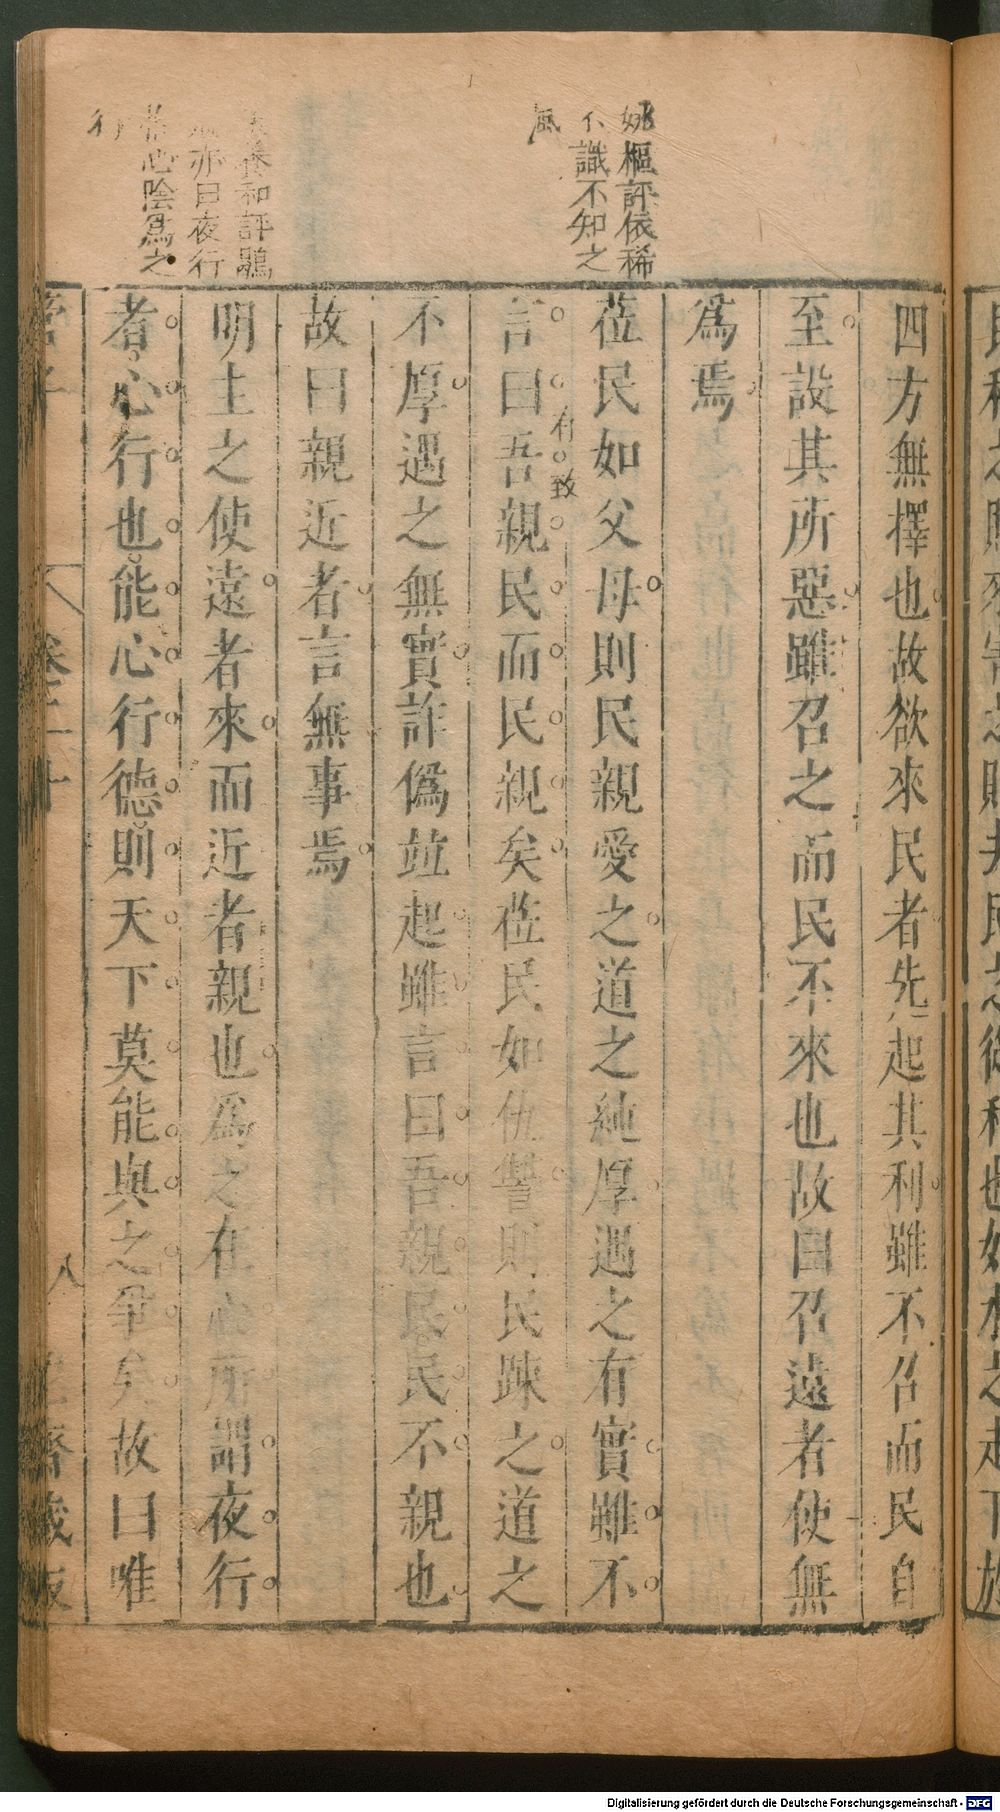 姚樞評依稀
不識不知之
風
和評鶡
亦曰夜行
心陰爲之
行
四方無擇也故欲來民者先起其利雖不召而民自
至設其所惡雖召之而民不來也故曰召遠者使無
爲焉
莅民如父母則民親愛之道之純厚遇之有實雖不
言曰吾親民而民親矣莅民如仇讐則民踈之道之
有致
不厚遇之無實詐僞竝起雖言曰吾親民民不親也
故曰親近者言無事焉
明主之使遠者來而近者親也爲之在心所謂夜行
者心行也能心行德則天下莫能與之爭矣故曰唯
管子
卷二十
八
Digitalisierung gefördert durch die Deutsche Forschungsgemeinschaft - DFG